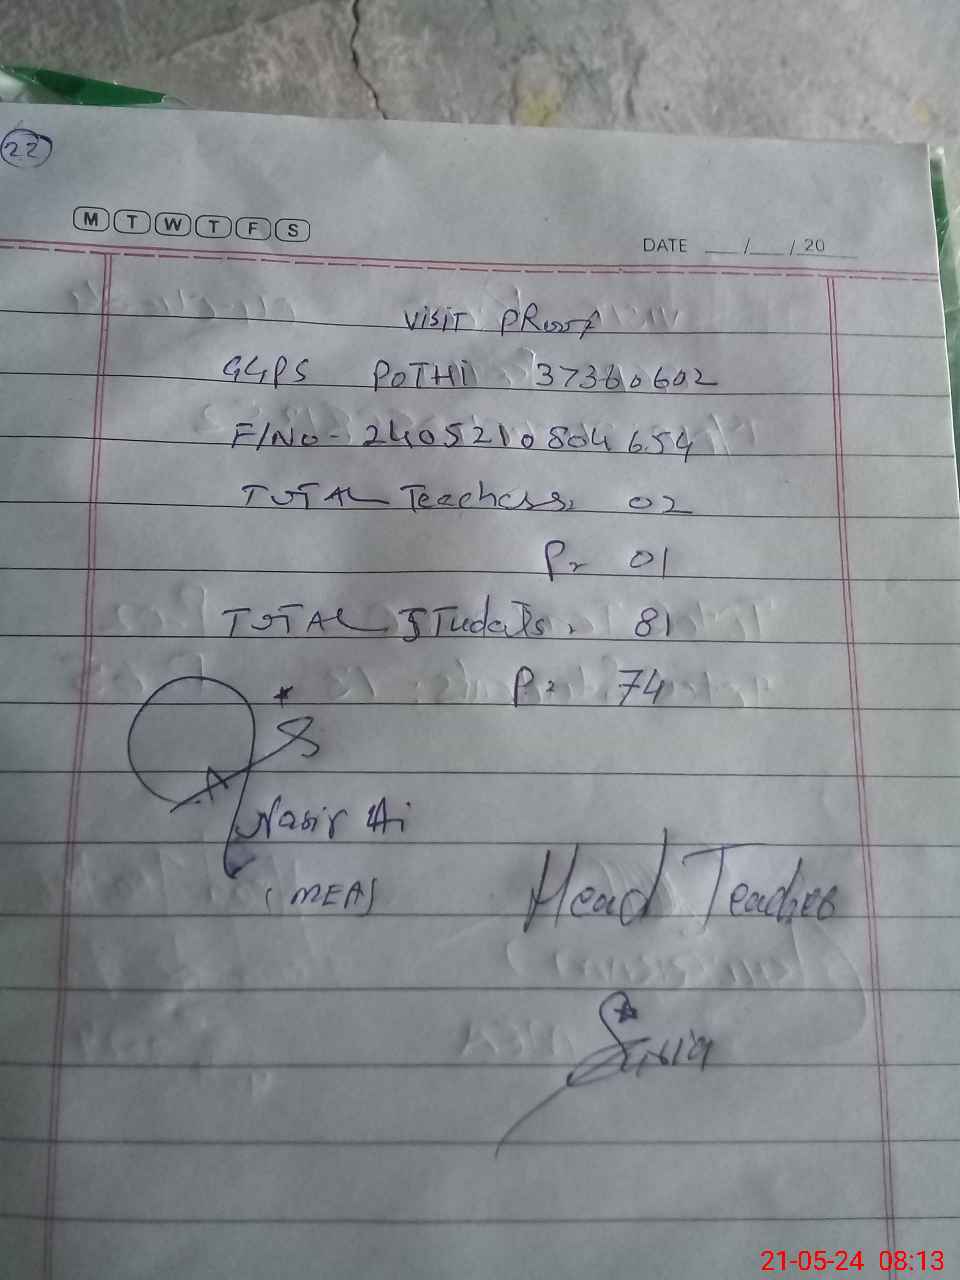 22
M T W T F S
DATE __/__/20__
VISIT PRoof
GGPS POTHI 37360602
F/No - 2405210804654
TOTAL Teachers. 02
Pr 01
TOTAL STudeTs. 81
Pr 74
Nasir Ali
(MEA)
Head Teacher
21-05-24 08:13